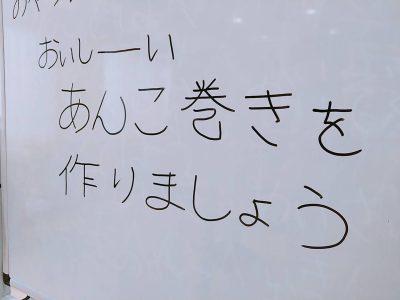 おいしーい
あんこ巻きを
作りましょう